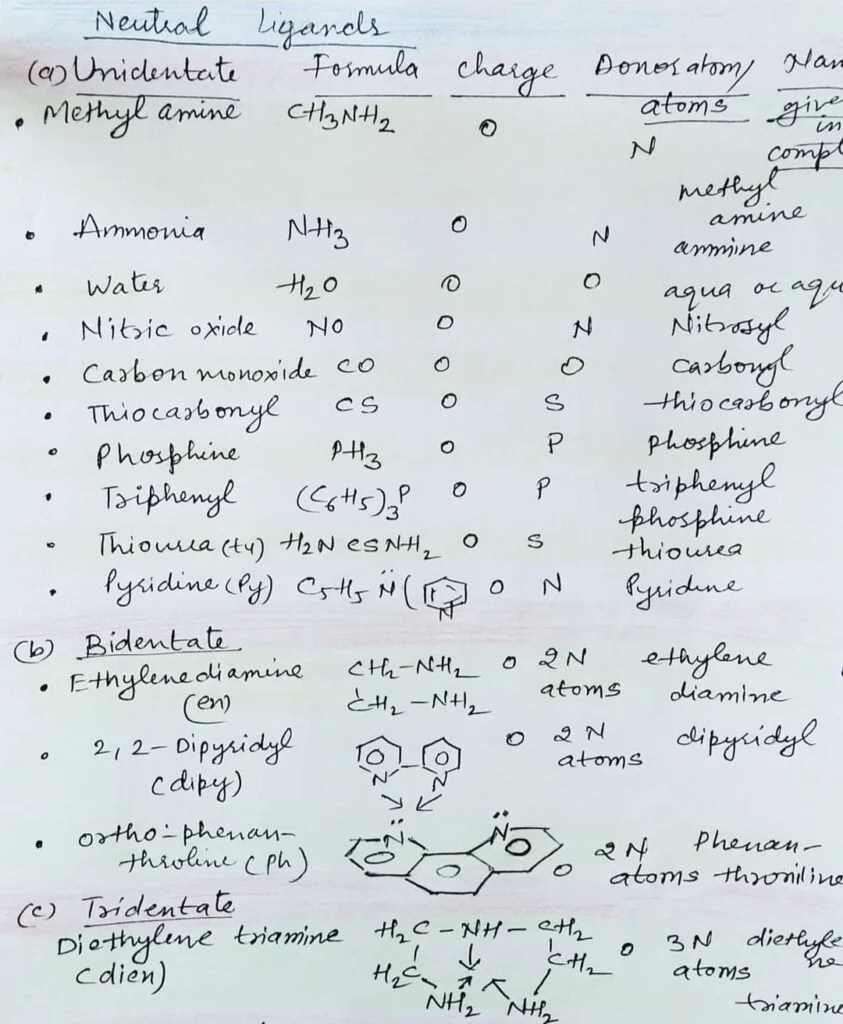 Neutral Ligands
(a) Unidentate Formula charge Donor atom/ Nam
atoms give
in
compl
• Methyl amine CH3NH2 O N methyl
amine
• Ammonia NH3 O N ammine
• Water H2O O O aqua or aqu
• Nitric oxide NO O N Nitrosyl
• Carbon monoxide CO O O carbonyl
• Thiocarbonyl CS O S thiocarbonyl
• Phosphine PH3 O P phosphine
• Triphenyl (C6H5)3P O P triphenyl
phosphine
• Thiourea (tu) H2N CS NH2 O S thiourea
• Pyridine (Py) C5H5 N̈ ( N O N Pyridine
(b) Bidentate
• Ethylenediamine CH2-NH2 O 2N ethylene
(en) CH2-NH2 atoms diamine
• 2,2-Dipyridyl O 2N dipyridyl
(dipy) N N atoms
• ortho-phenan- N̈ N̈ O 2N Phenan-
throline (Ph) atoms throniline
(c) Tridentate
Diethylene triamine H2C-NH-CH2 O 3N diethyle
(dien) H2C CH2 atoms ne
NH2 NH2 triamine